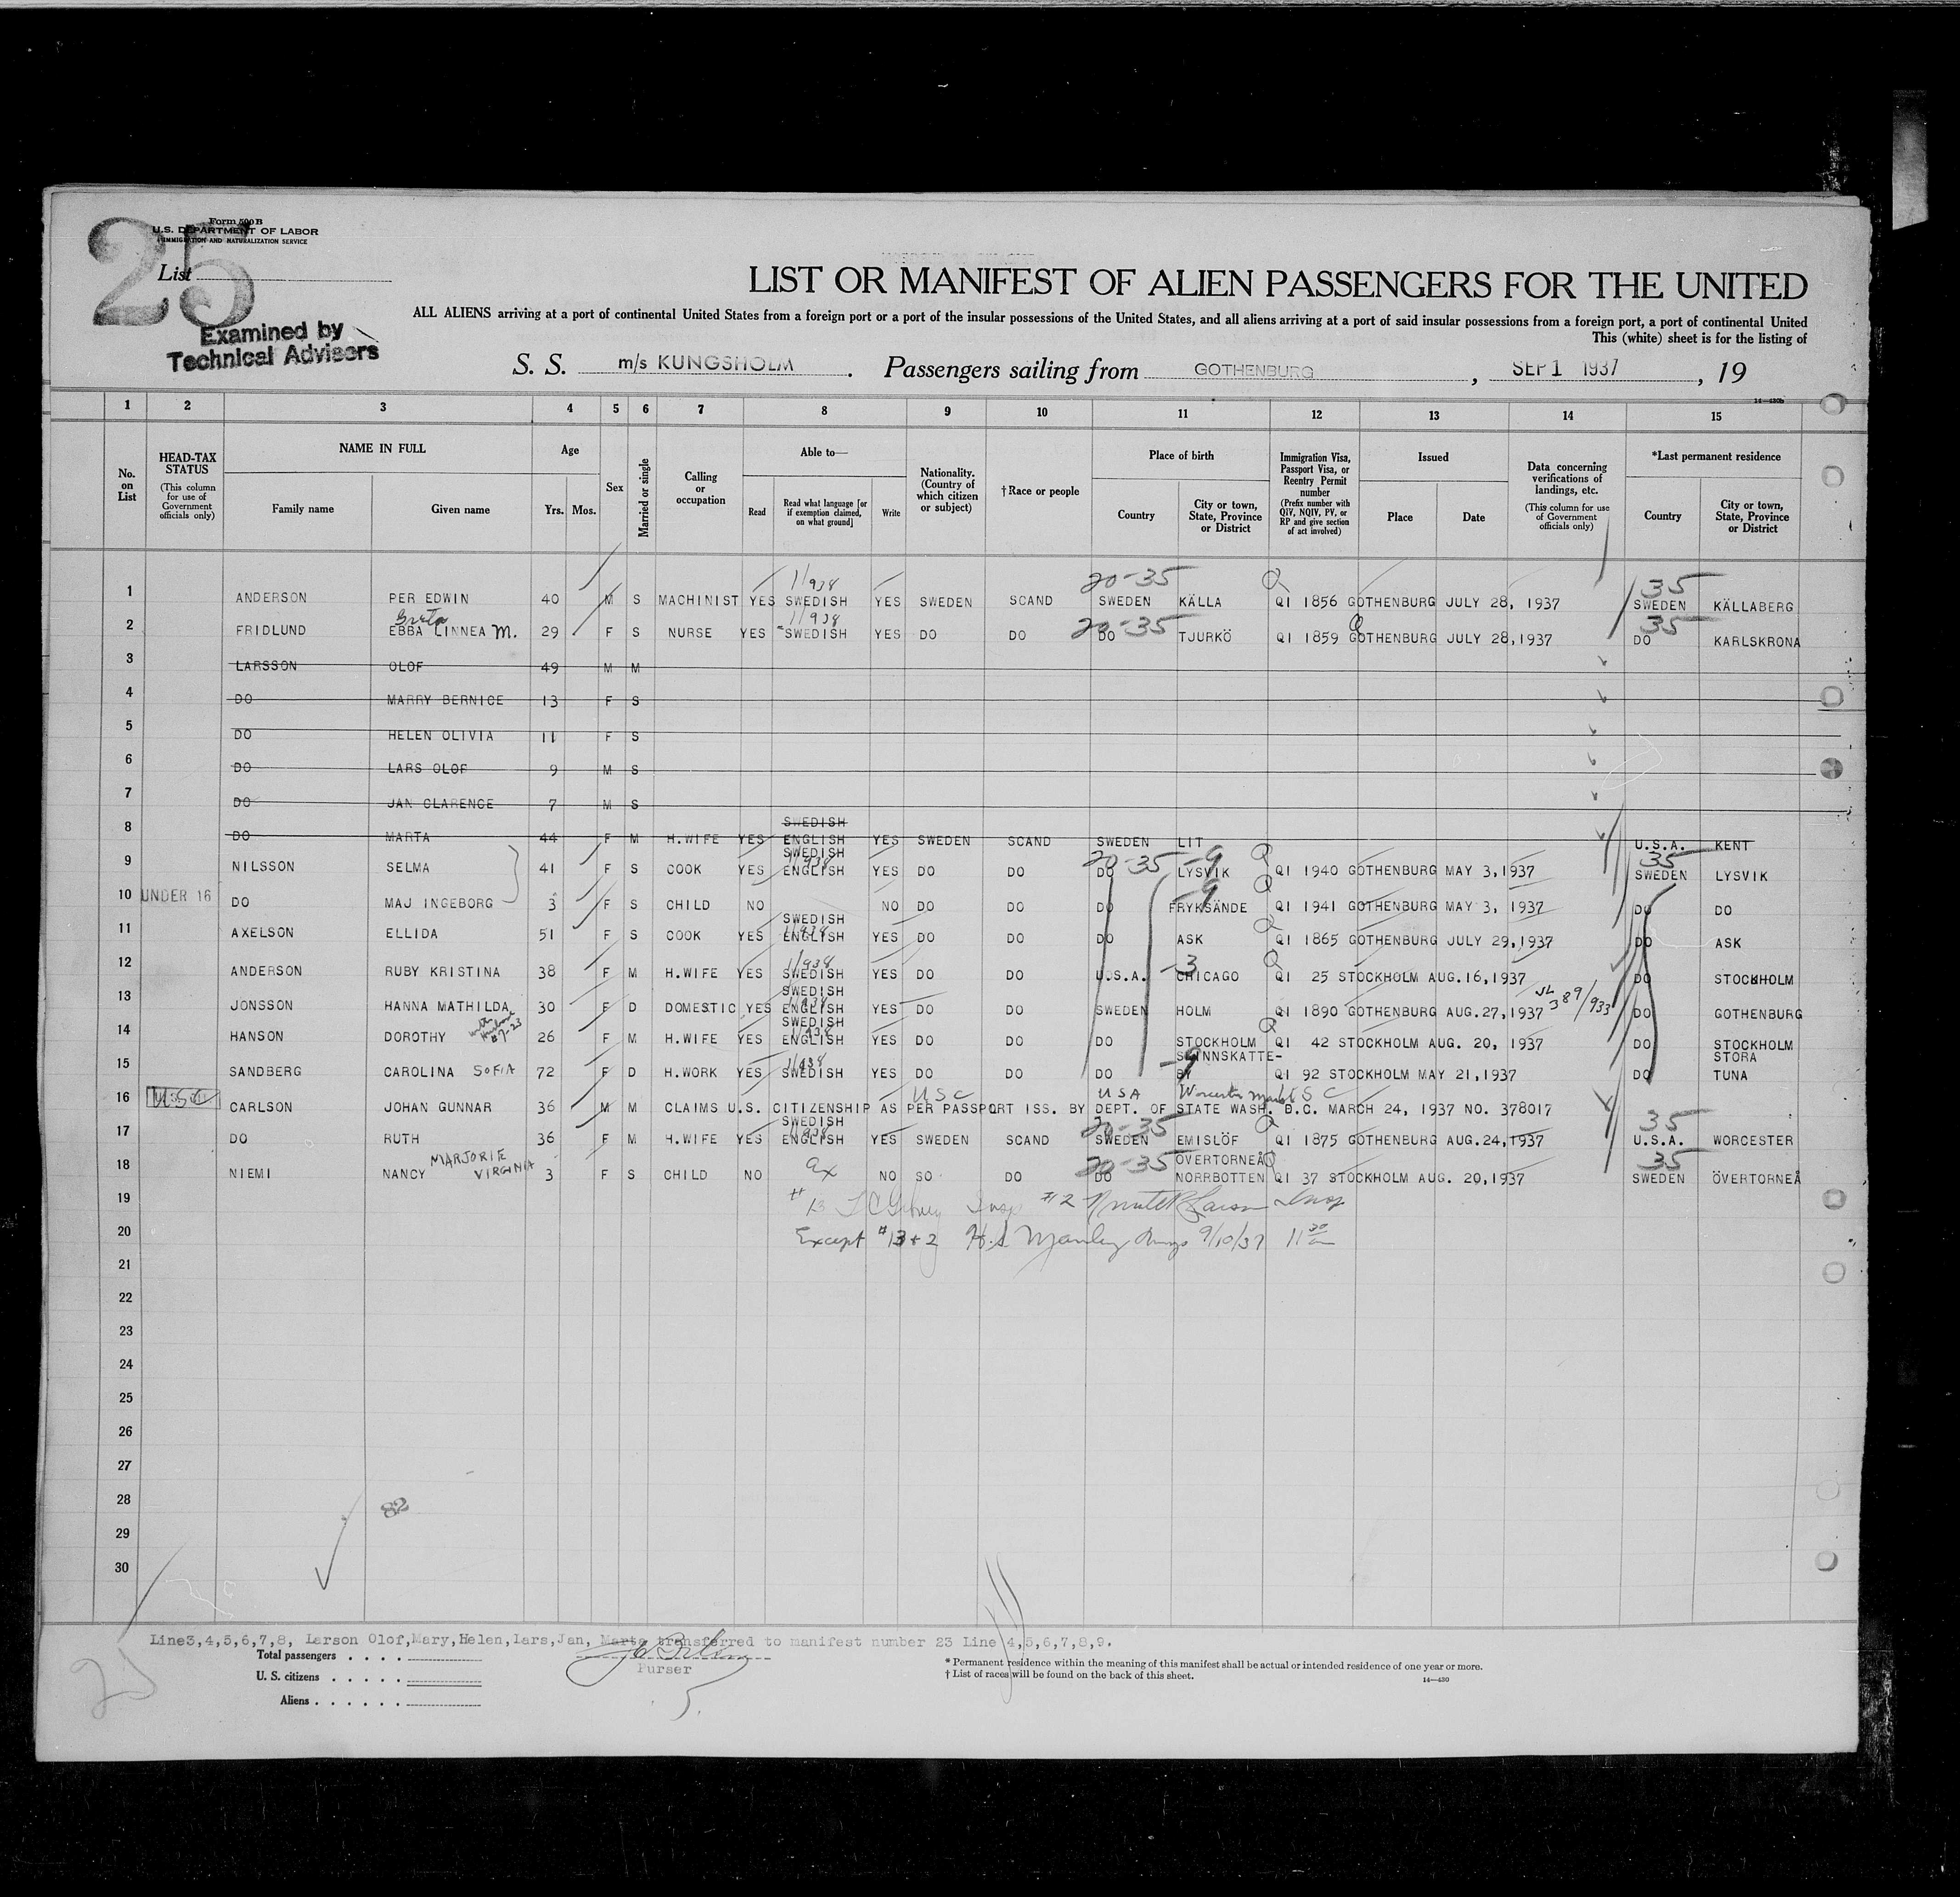 25
Form 500 B
U.S. DEPARTMENT OF LABOR
IMMIGRATION AND NATURALIZATION SERVICE
List
Examined by
Technical Advisers
LIST OR MANIFEST OF ALIEN PASSENGERS FOR THE UNITED
ALL ALIENS arriving at a port of continental United States from a foreign port or a port of the insular possessions of the United States, and all aliens arriving at a port of said insular possessions from a foreign port, a port of continental United
This (white) sheet is for the listing of
S. S. m/s KUNGSHOLM. Passengers sailing from GOTHENBURG, SEP 1 1937, 19
14—430b
1 2 3 4 5 6 7 8 9 10 11 12 13 14 15
No. on List
HEAD-TAX STATUS (This column for use of Government officials only)
NAME IN FULL
Family name Given name
Age
Yrs. Mos.
Sex
Married or single
Calling or occupation
Able to—
Read Read what language [or if exemption claimed, on what ground] Write
Nationality. (Country of which citizen or subject)
†Race or people
Place of birth
Country City or town, State, Province or District
Immigration Visa, Passport Visa, or Reentry Permit number (Prefix number with QIV, NQIV, PV, or RP and give section of act involved)
Issued
Place Date
Data concerning verifications of landings, etc. (This column for use of Government officials only)
*Last permanent residence
Country City or town, State, Province or District
11938 20-35 35
1 ANDERSON PER EDWIN 40 M S MACHINIST YES SWEDISH YES SWEDEN SCAND SWEDEN KÄLLA QI 1856 GOTHENBURG JULY 28, 1937 SWEDEN KÄLLABERG
Greta 11938 20-35 35
2 FRIDLUND EBBA LINNEA M. 29 F S NURSE YES SWEDISH YES DO DO DO TJURKÖ QI 1859 GOTHENBURG JULY 28,1937 DO KARLSKRONA
3 LARSSON OLOF 49 M M
4 DO MARRY BERNICE 13 F S
5 DO HELEN OLIVIA 11 F S
6 DO LARS OLOF 9 M S
7 DO JAN CLARENCE 7 M S
SWEDISH
8 DO MARTA 44 F M H.WIFE YES ENGLISH YES SWEDEN SCAND SWEDEN LIT U.S.A. KENT
SWEDISH 11938 20-35 -9 35
9 NILSSON SELMA 41 F S COOK YES ENGLISH YES DO DO DO LYSVIK QI 1940 GOTHENBURG MAY 3,1937 SWEDEN LYSVIK
-9
10 UNDER 16 DO MAJ INGEBORG 3 F S CHILD NO NO DO DO DO FRYKSÄNDE QI 1941 GOTHENBURG MAY 3, 1937 DO DO
SWEDISH 11938
11 AXELSON ELLIDA 51 F S COOK YES ENGLISH YES DO DO DO ASK QI 1865 GOTHENBURG JULY 29,1937 DO ASK
11938 -3
12 ANDERSON RUBY KRISTINA 38 F M H.WIFE YES SWEDISH YES DO DO U.S.A. CHICAGO QI 25 STOCKHOLM AUG.16,1937 DO STOCKHOLM
SWEDISH 11938 389/933
13 JONSSON HANNA MATHILDA 30 F D DOMESTIC YES ENGLISH YES DO DO SWEDEN HOLM QI 1890 GOTHENBURG AUG.27,1937 DO GOTHENBURG
SWEDISH 11938
14 HANSON DOROTHY with husband #7-23 26 F M H.WIFE YES ENGLISH YES DO DO DO STOCKHOLM QI 42 STOCKHOLM AUG. 20, 1937 DO STOCKHOLM
11938 -9 STORA
15 SANDBERG CAROLINA SOFIA 72 F D H.WORK YES SWEDISH YES DO DO DO QI 92 STOCKHOLM MAY 21,1937 DO TUNA
USC USC USA Worcester Mass USC
16 CARLSON JOHAN GUNNAR 36 M M CLAIMS U.S. CITIZENSHIP AS PER PASSPORT ISS. BY DEPT. OF STATE WASH. D.C. MARCH 24, 1937 NO. 378017
SWEDISH 11938 20-35 35
17 DO RUTH 36 F M H.WIFE YES ENGLISH YES SWEDEN SCAND SWEDEN EMISLÖF QI 1875 GOTHENBURG AUG.24,1937 U.S.A. WORCESTER
MARJORIE VIRGINIA 20-35 ÖVERTORNEÅ 35
18 NIEMI NANCY 3 F S CHILD NO ax NO SO DO DO NORRBOTTEN QI 37 STOCKHOLM AUG. 20,1937 SWEDEN ÖVERTORNEÅ
19 #13 Insp #2 Larson Insp
20 Except #13+2 H.S. Manley Insp 9/10/37 11 30 am
21
22
23
24
25
26
27
28 82
29
30
Line3,4,5,6,7,8, Larson Olof,Mary,Helen,lars,Jan, Marta transferred to manifest number 23 Line 4,5,6,7,8,9.
Total passengers
U. S. citizens
Aliens
Purser
* Permanent residence within the meaning of this manifest shall be actual or intended residence of one year or more.
† List of races will be found on the back of this sheet.
14—430